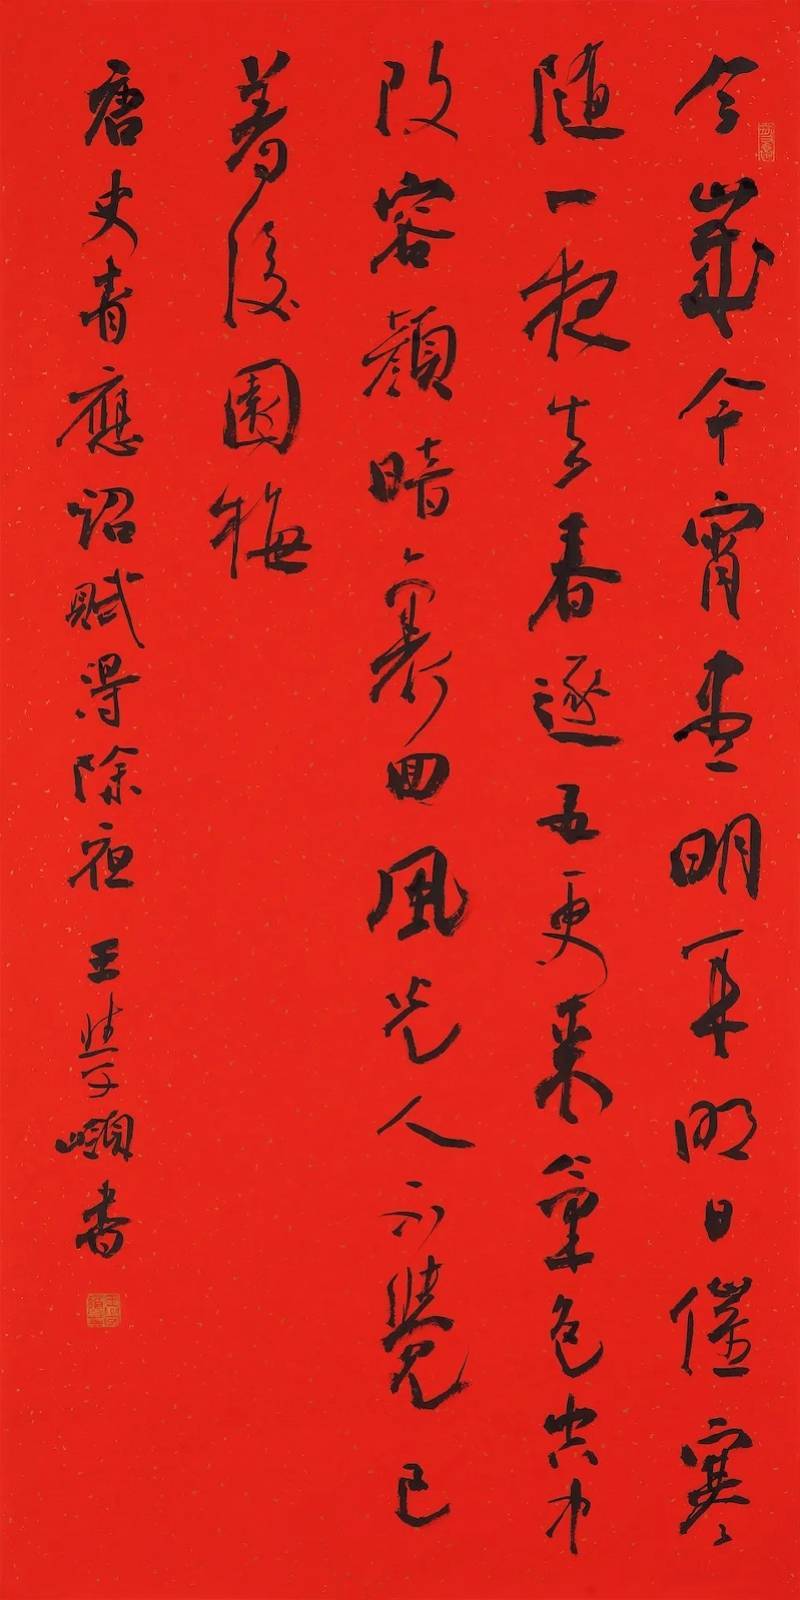 今歲今宵盡明年明日催寒
隨一夜去春逐五更來氣色空中
改容顏暗裏回風光人不覺已
著後園梅
唐史青應詔賦得除夜 王學嶺書